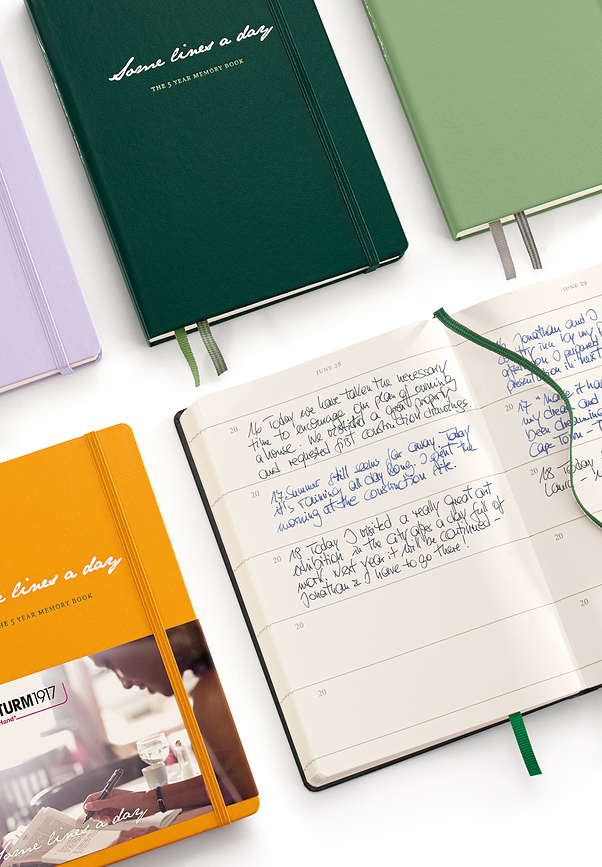 Some lines a day
THE 5 YEAR MEMORY BOOK
JUNE 28
20 16 Today we have taken the necessary
time to encourage our plan of owning
a house. We visited a great property
and requested first construction drawings.
20 17 Summer still seems far away. Today
it's raining all day long. I spent the
morning at the construction site.
20 18 Today I visited a really great art
exhibition in the city after a day full of
work. Next year it will be continued -
Jonathan & I have to go there!
20
20
JUNE 29
16 Jonathan and I
afternoon I prepared
presentation in
17
my dream and
been dreaming
Cape Town - T
18 Today
20
20
lines a day
THE 5 YEAR MEMORY BOOK
TURM1917
Some lines a day